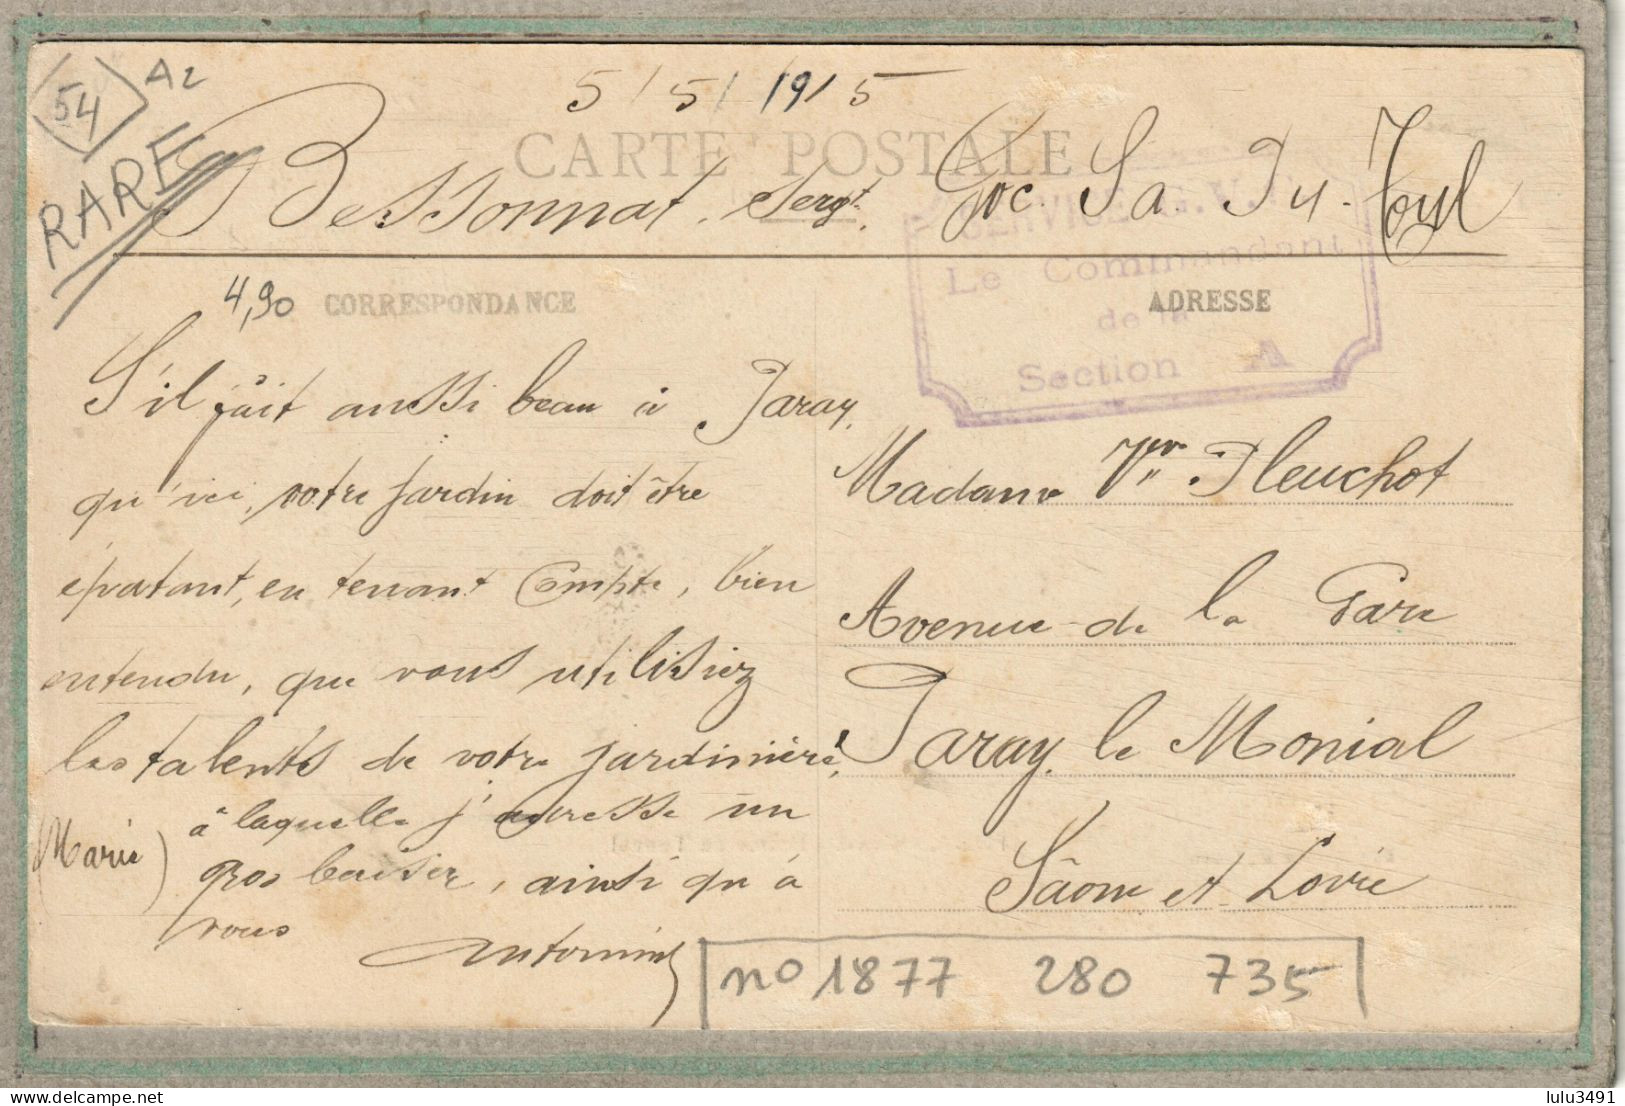 54 A2
RARE
5/5/1915
CARTE POSTALE
Bessonnat. Sergt. Goc. Sa. Du. Toul
4,90
CORRESPONDANCE
ADRESSE
SERVICE G.V.
Le Commandant
de la
Section A
S'il fait aussi beau à Paray,
qu'ici, votre jardin doit être
épatant, en tenant Compte, bien
entendu, que vous utilisiez
les talents de votre jardinière,
(Marie) à laquelle j'adresse un
gros baiser, ainsi qu'à
vous
Antonin
Madame Vve Pleuchot
Avenue de la Gare
Paray le Monial
Sâone et Loire
no 1877 280 735
lulu3491